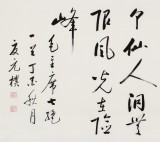 个仙人洞无
限风光在险
峰
毛主席七绝
一首丁巳秋月